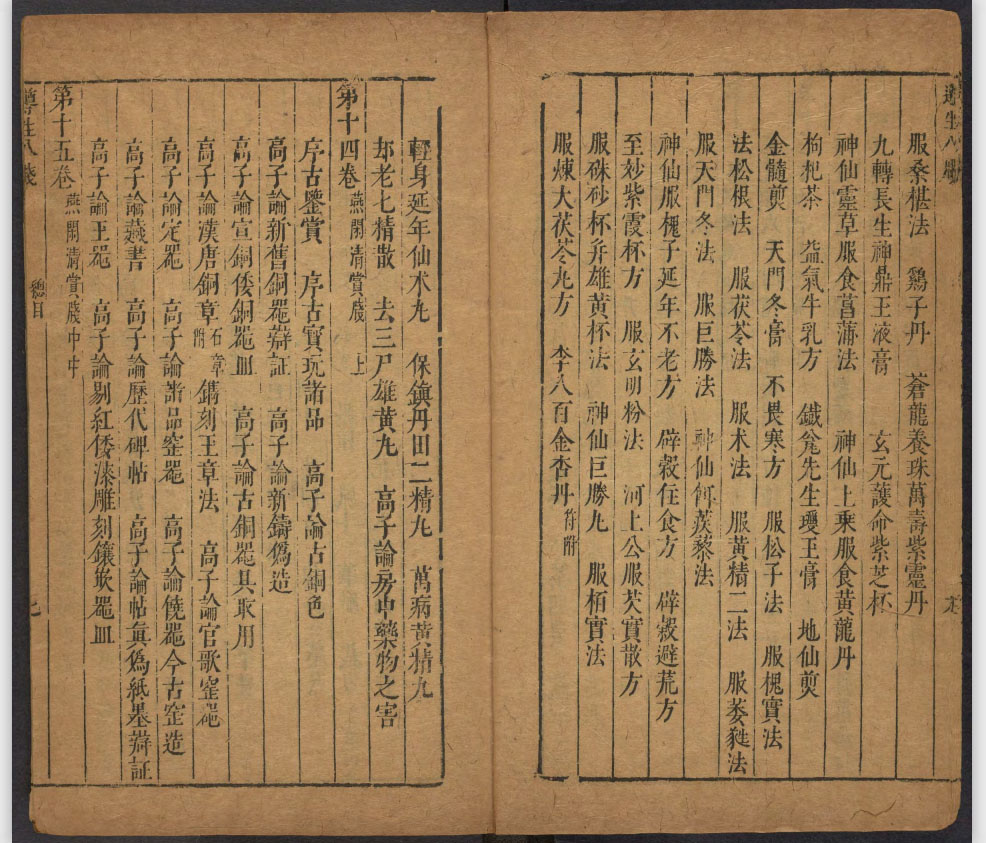 遵生八牋
服桑椹法　鷄子丹　蒼龍養珠萬壽紫靈丹
九轉長生神鼎玉液膏　玄元護命紫芝杯
神仙靈草服食菖蒲法　神仙上乘服食黃龍丹
枸杞茶　益氣牛乳方　鐵瓮先生瓊玉膏　地仙煎
金髓煎　天門冬膏　不畏寒方　服松子法　服槐實法
法松根法　服茯苓法　服术法　服黃精二法　服萎蕤法
服天門冬法　服巨勝法　神仙餌蒺藜法
神仙服槐子延年不老方　辟穀住食方　辟穀避荒方
至妙紫霞杯方　服玄明粉法　河上公服芡實散方
服硃砂杯并雄黃杯法　神仙巨勝丸　服栢實法
服煉大茯苓丸方　李八百金杏丹 符附
輕身延年仙术丸　保鎮丹田二精丸　萬病黃精丸
却老七精散　去三尸雄黃丸　高子論房中藥物之害
第十四卷 燕閒清賞牋 上
序古鑒賞　序古寶玩諸品　高子論古銅色
高子論新舊銅器辯証　高子論新鑄僞造
高子論宣銅倭銅器皿　高子論古銅器具取用
高子論漢唐銅章 石章附　鐫刻玉章法　高子論官歌窑器
高子論定器　高子論諸品窑器　高子論饒器今古窑造
高子論藏書　高子論歷代碑帖　高子論帖真僞紙墨辯証
高子論玉器　高子論剔紅倭漆雕刻鑲嵌器皿
第十五卷 燕閒清賞牋中
遵生八牋　總目　七